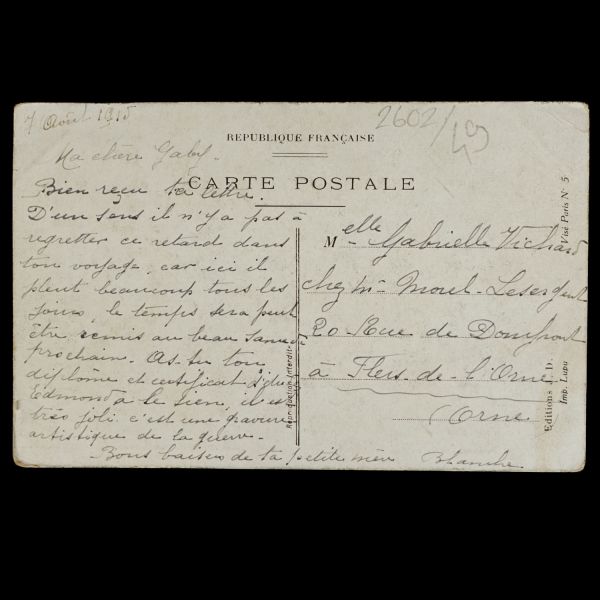 7 Août 1915
2602/49
REPUBLIQUE FRANÇAISE
CARTE POSTALE
Ma chère Gaby.
Bien reçu ta lettre.
D'un sens il n'y a pas à
regretter ce retard dans
ton voyage, car ici il
pleut beaucoup tous les
jours, le temps sera peut
être remis au beau Samedi
prochain. As-tu ton
diplôme et certificat d'
Edmond a le sien, il est
très joli c'est une gravure
artistique de la guerre.
Bons baisers de ta petite mère Blanche
Melle Gabrielle Vichard
chez Mr Morel-Lesergent
20 Rue de Domfront
à Flers-de-l'Orne
Orne
Reproduction Interdite
Visé Paris No 5
Editions I. D.
Imp. Lupu